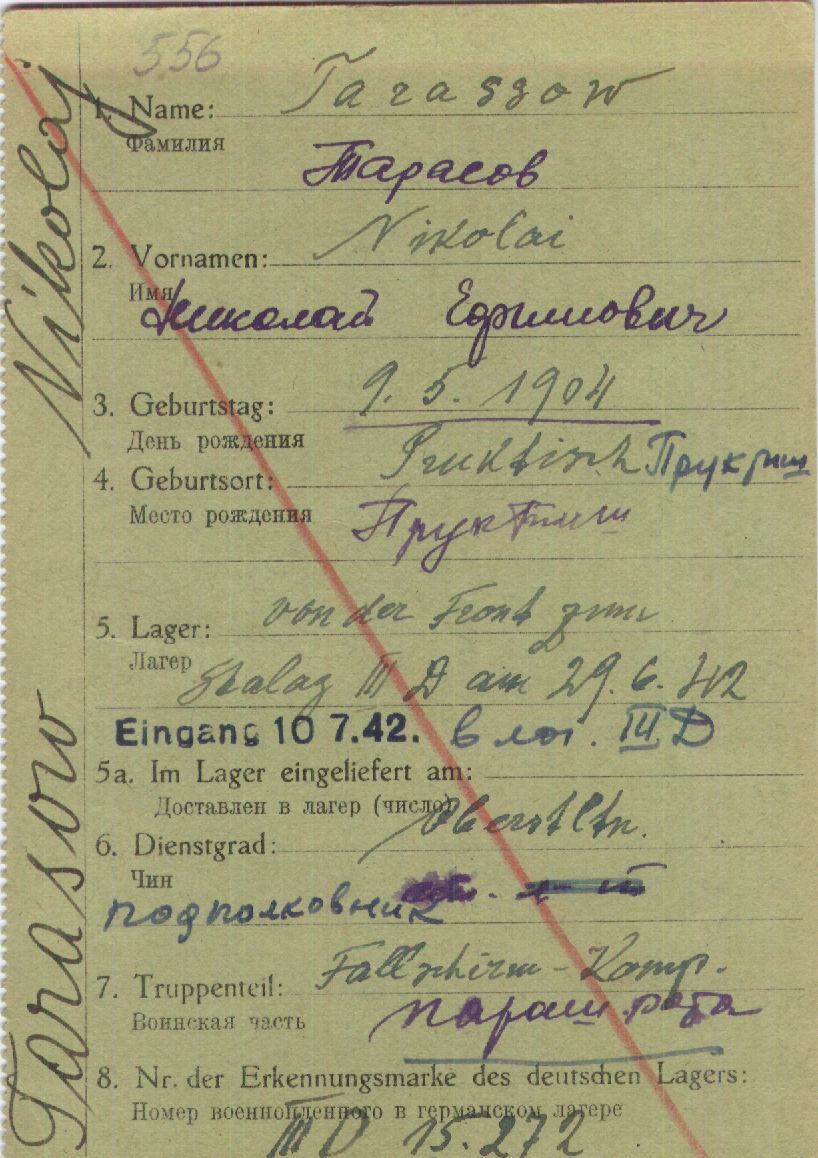 556
1. Name: Tarassow
Фамилия
Тарасов
2. Vornamen: Nikolai
Имя
Николай Ефимович
3. Geburtstag: 9. 5. 1904
День рождения
4. Geburtsort: Pruktisch
Место рождения
5. Lager: von der Front zum
Лагер
Stalag III D am 29. 6. 42
Eingang 10 7.42. в лаг. III D
5a. Im Lager eingeliefert am:
Доставлен в лагер (число)
6. Dienstgrad: Oberstltn.
Чин
подполковник
7. Truppenteil: Fallschirm-Komp.
Воинская часть параш. рота
8. Nr. der Erkennungsmarke des deutschen Lagers:
Номер военнопленного в германском лагере
III D 15.272
Tarasow Nikolaj